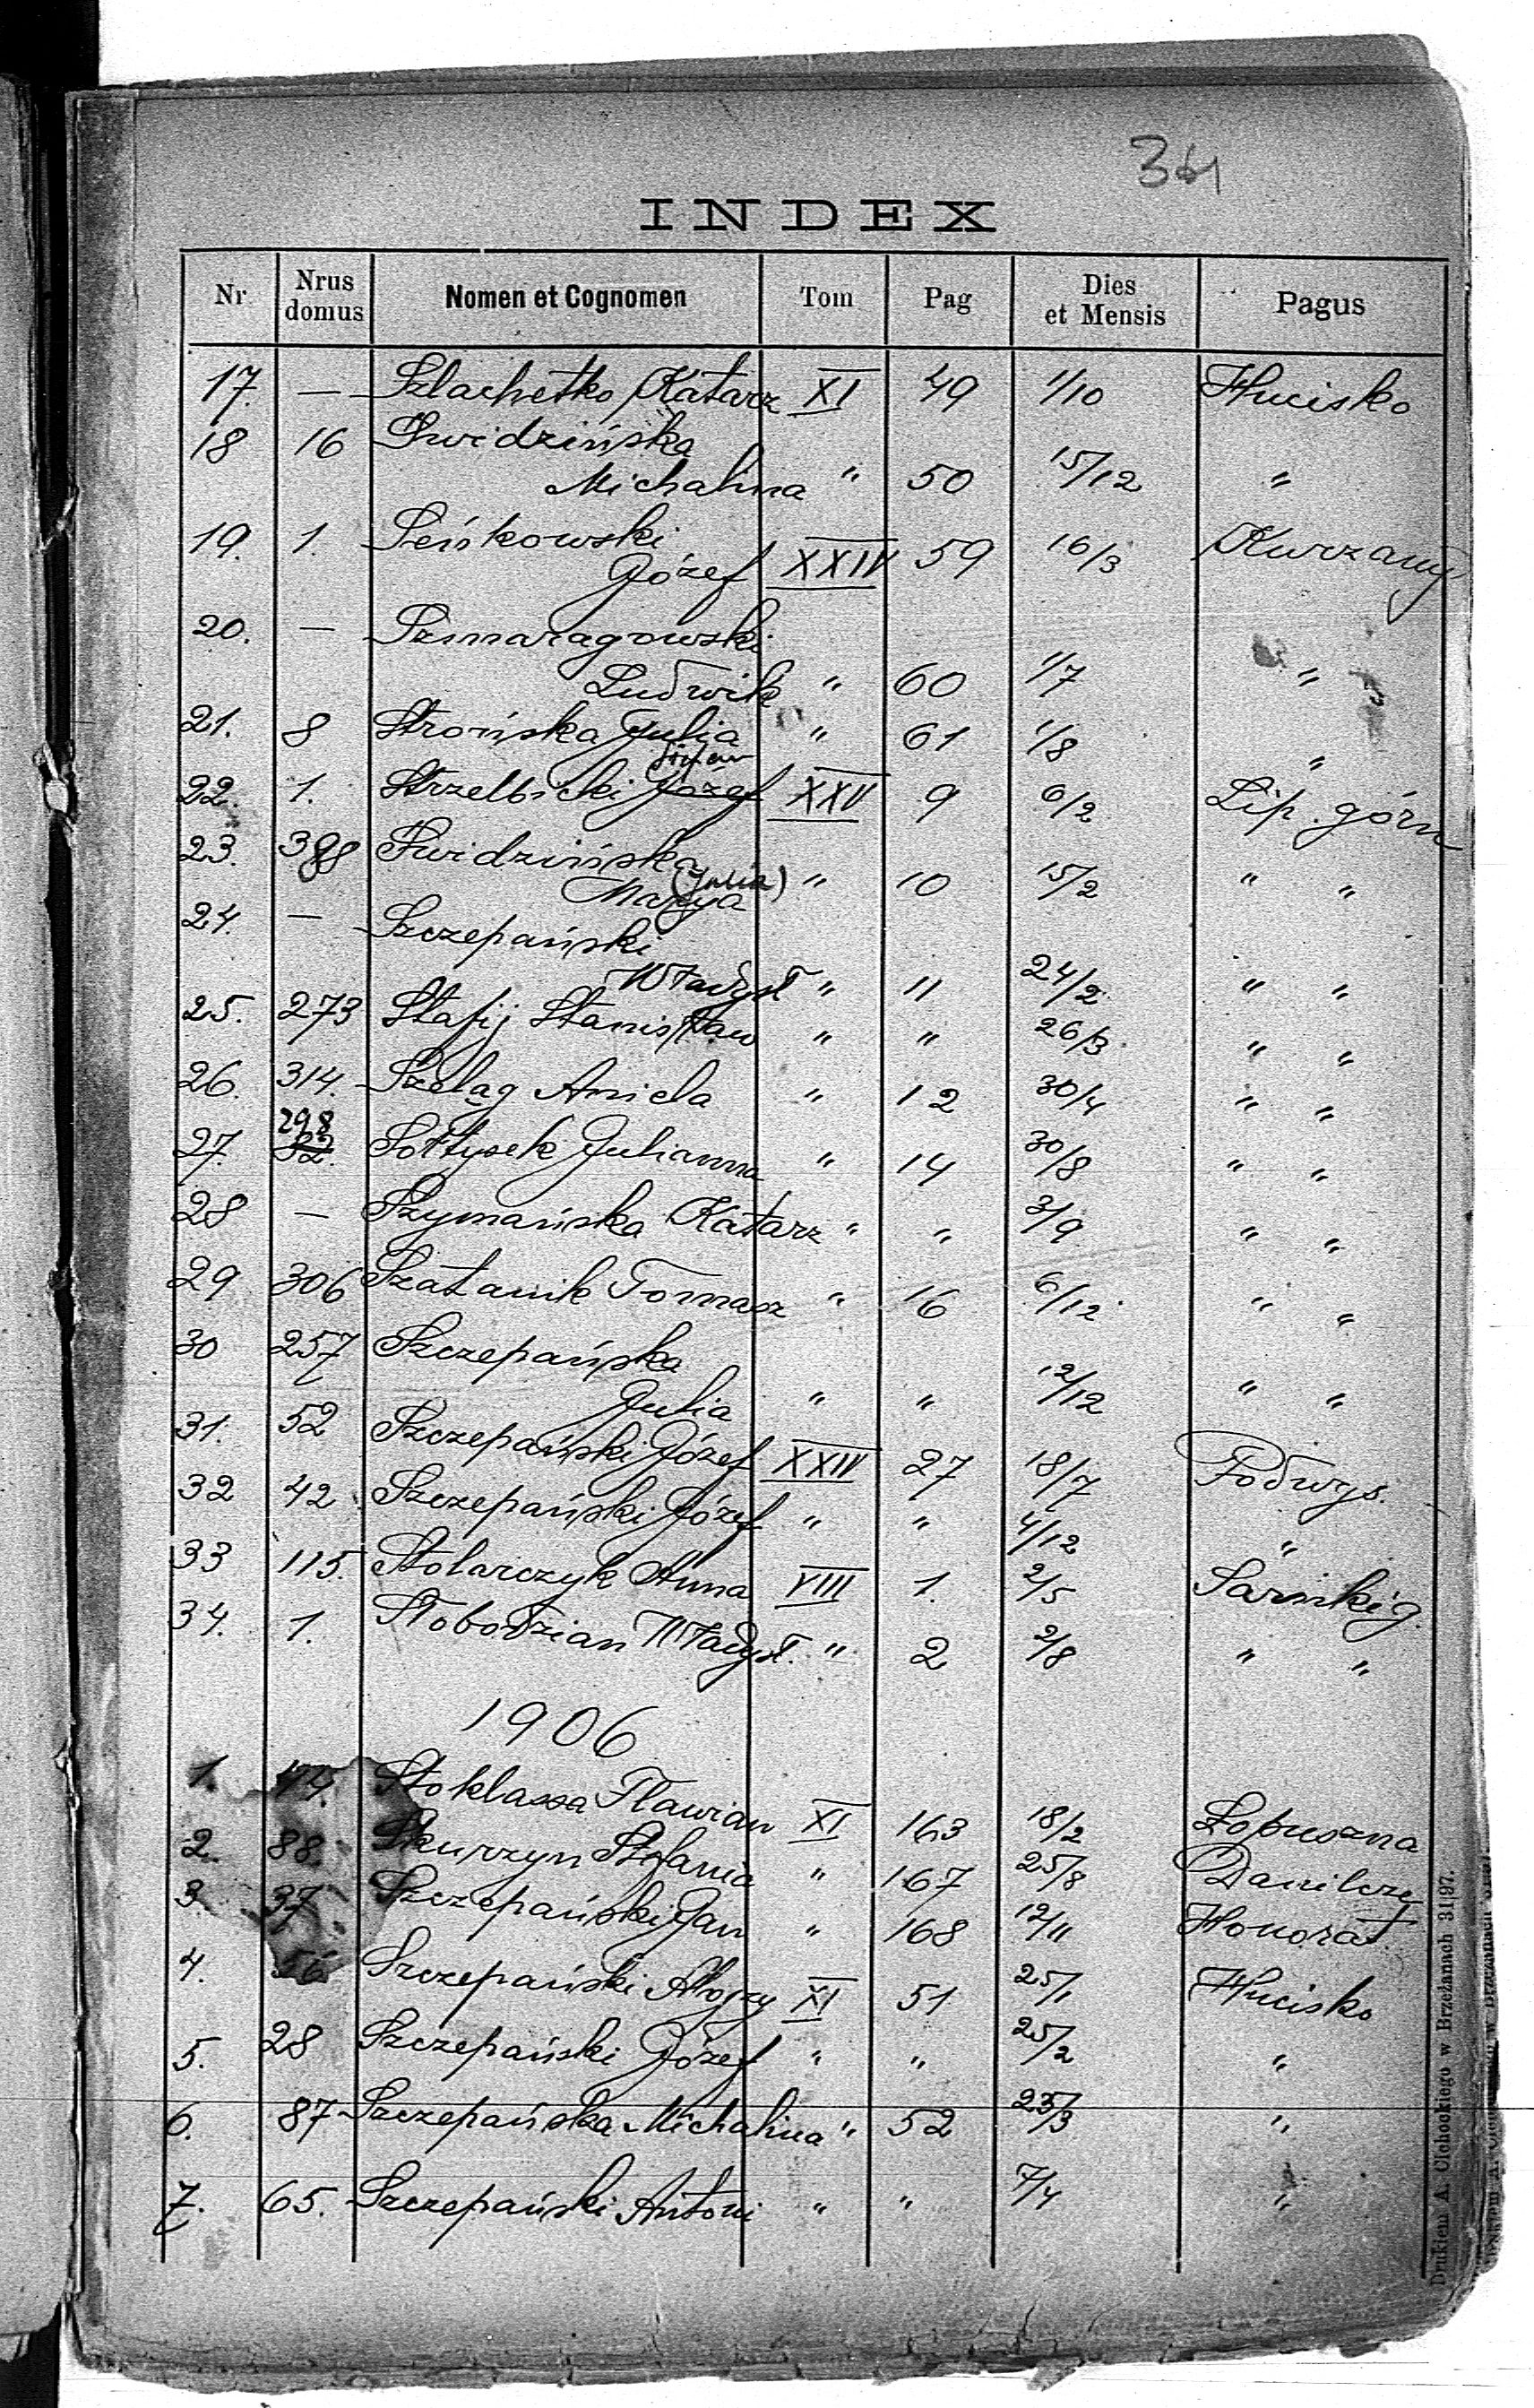 34
INDEX
Nr Nrus domus Nomen et Cognomen Tom Pag Dies et Mensis Pagus
17. — Szlachetko Katarz XI 49 1/10 Hucisko
18 16 Swidzińska
Michalina " 50 15/12 "
19. 1. Seńkowski
Józef XXIV 59 16/3 Kurzany
20. — Szmaragowski
Ludwik " 60 1/7 "
21. 8 Strońska Julia " 61 1/8 "
22. 1. Strzelbicki Józef XXV 9 6/2 Lip. górn
23. 398 Swidzińska
(Julia)
Marya " 10 15/2 " "
24. — Szczepański
Władysł " 11 24/2 " "
25. 273 Stafij Stanisław " " 26/3 " "
26. 314. Szeląg Aniela " 12 30/4 " "
298
27. 32. Sołtysek Julianna " 14 30/8 " "
28 — Szymańska Katarz " " 3/9 " "
29 306 Szatanik Tomasz " 16 6/12 " "
30 257 Szczepańska
Julia " " 12/12 " "
31. 52 Szczepański Józef XXIV 27 18/7 Podwys.
32 42 Szczepański Józef " " 4/12 "
33 115. Stolarczyk Anna VIII 1. 2/5 Sarnki g.
34. 1. Słobodzian Władysł. " 2 2/8 " "
1906
1. 44. Stoklassa Flawian XI 163 18/2 Łopuszna
2. 88. Skurzyn Stefania " 167 25/8 Danilcze
3. 37. Szczepański Jan " 168 12/11 Honorat.
4. 56 Szczepański Alojzy XI 51 25/1 Hucisko
5. 28 Szczepański Józef " " 25/2 "
6. 87 Szczepańska Michalina " 52 23/3 "
7. 65. Szczepański Antoni " " 7/4 "
Drukiem A. Cichockiego w Brzeżanach 31|97.